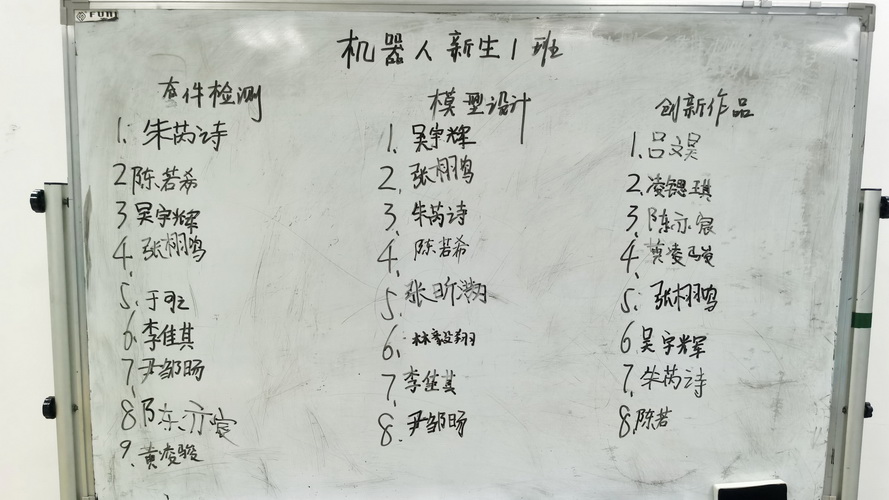 机器人新生1班
套件检测
1. 朱芮诗
2 陈若希
3 吴宇辉
4. 张栩鸣
5. 于
6. 李佳其
7. 尹邹旸
8 陈亦宸
9. 黄凌骏
模型设计
1. 吴宇辉
2. 张栩鸣
3. 朱芮诗
4. 陈若希
5. 张昕
6. 林 翔
7. 李佳其
8. 尹邹旸
创新作品
1. 吕文昊
2. 凌锶琪
3. 陈亦宸
4. 黄凌骏
5. 张栩鸣
6 吴宇辉
7. 朱芮诗
8. 陈若